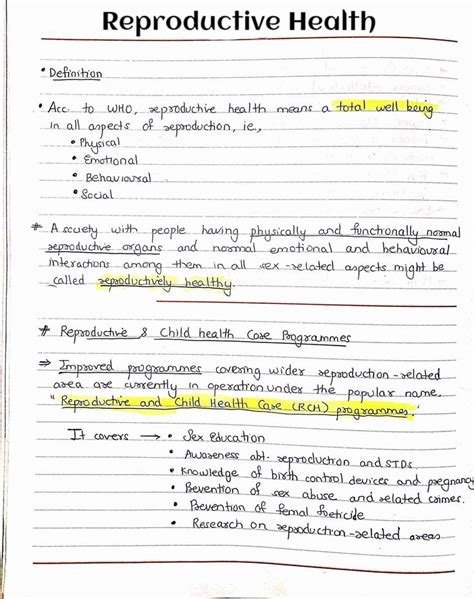 Reproductive Health
• Definition
• Acc. to WHO, reproductive health means a total well being
in all aspects of reproduction, ie.,
• Physical
• Emotional
• Behavioural
• Social
# A society with people having physically and functionally normal
reproductive organs and normal emotional and behavioural
interactions among them in all sex-related aspects might be
called reproductively healthy.
# Reproductive & Child health Care Programmes
⇒ Improved programmes covering wider reproduction-related
area are currently in operation under the popular name.
"Reproductive and Child Health Care (RCH) programmes."
It covers → • Sex Education
• Awareness abt. reproduction and STDs.
• Knowledge of birth control devices and pregnancy
• Prevention of sex abuse and related crimes.
• Prevention of female foeticide
• Research on reproduction-related areas